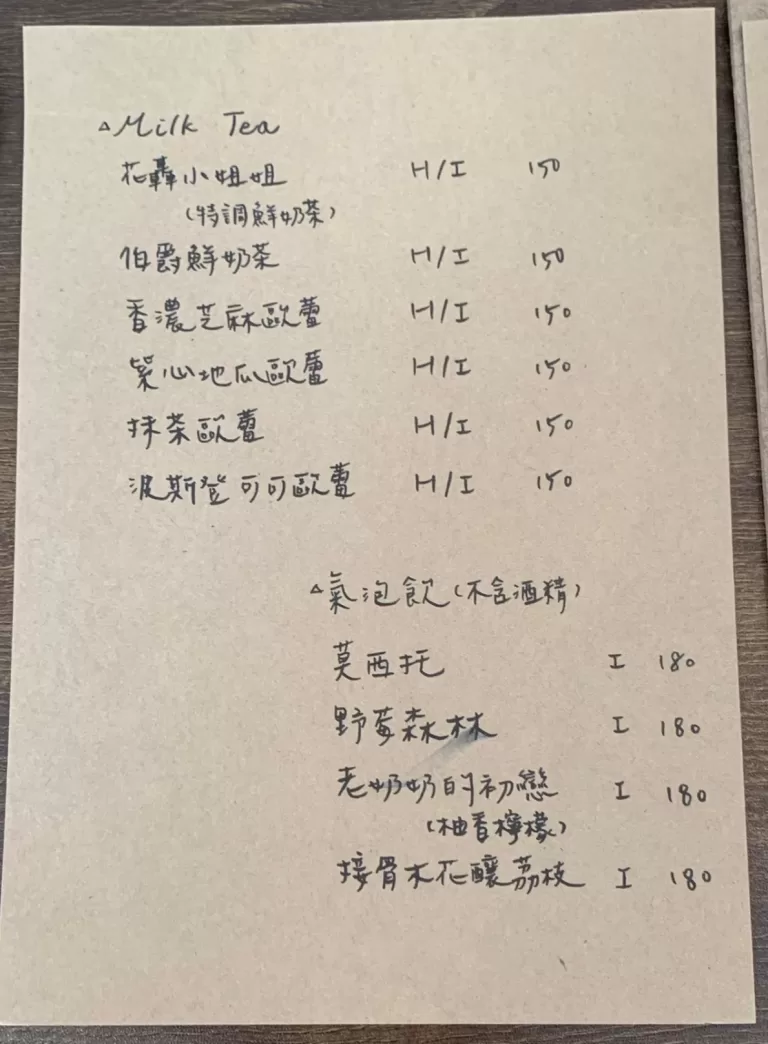 △Milk Tea
花轟小姐姐 H/I 150
(特調鮮奶茶)
伯爵鮮奶茶 H/I 150
香濃芝麻歐蕾 H/I 150
紫心地瓜歐蕾 H/I 150
抹茶歐蕾 H/I 150
波斯登可可歐蕾 H/I 150
△氣泡飲(不含酒精)
莫西托 I 180
野莓森林 I 180
老奶奶的初戀 I 180
(柚香檸檬)
接骨木花釀荔枝 I 180